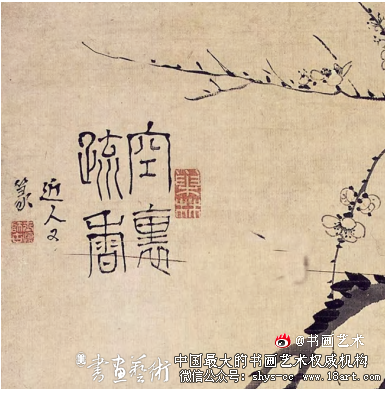 空裏
疏香
近人又
篆
@书画艺术
書畫藝術
中国最大的书画艺术权威机构
微信公众号：shys-cc www.18art.com